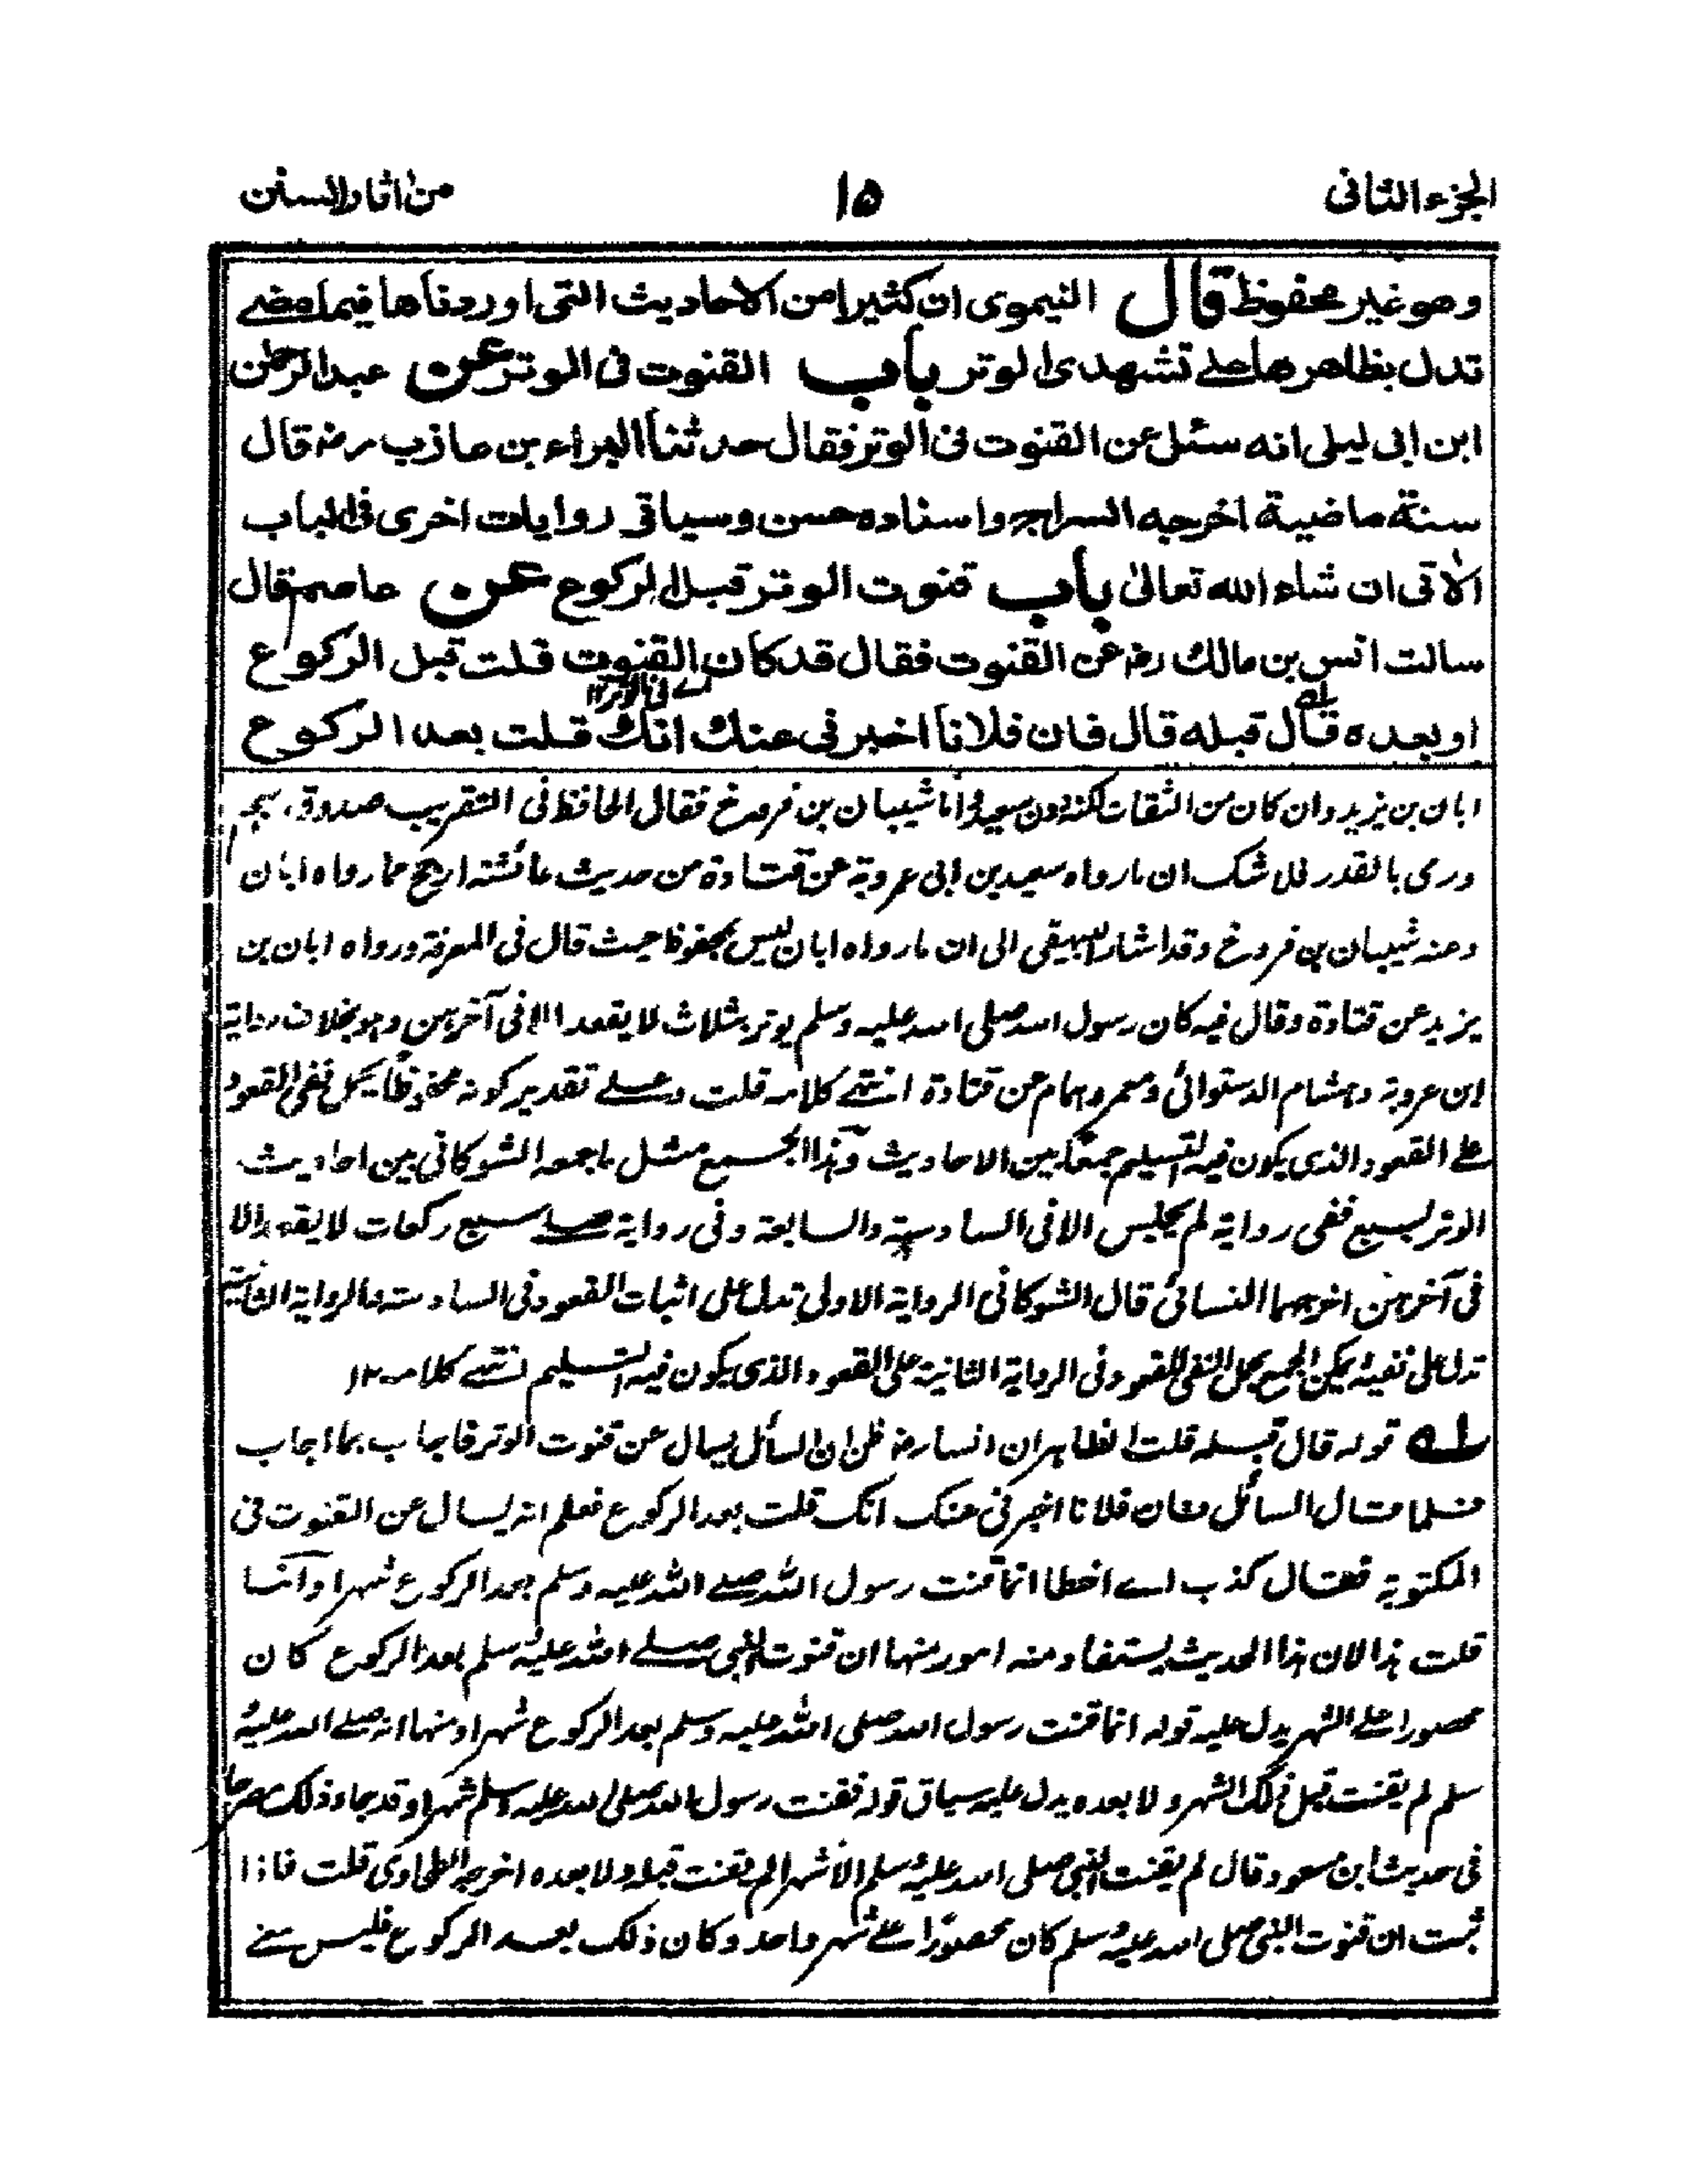 الجزء الثانى ١٥ من اثار السنن
وهو غير محفوظ قال النيموى ان كثيرا من الاحاديث التى اوردناها فيما مضے
تدل بظاهرها علے تشهدى الوتر باب القنوت فى الوتر عن عبد الرحمٰن
ابن ابى ليلى انه سئل عن القنوت فى الوتر فقال حدثنا البراء بن عازب رضہ قال
سنة ماضية اخرجه السراج واسناده حسن وسياتى روايات اخرى فى الباب
الاٰتى ان شاء الله تعالىٰ باب قنوت الوتر قبل الركوع عن عاصم قال
سالت انس بن مالك رضہ عن القنوت فقال قد كان القنوت قلت قبل الركوع
اے فى الوتر ١٢
او بعده قال قبله قال فان فلانا اخبرنى عنك انك قلت بعد الركوع
ابان بن يزيد وان كان من الثقات لكنه دون سعيد واما شيبان بن فروخ فقال الحافظ فى التقريب صدوق يهم
ورمى بالقدر فلا شك ان ما رواه سعيد بن ابى عروبة عن قتادة من حديث عائشة ارجح مما رواه ابان
وعنه شيبان بن فروخ وقد اشار البيهقى الى ان ما رواه ابان ليس بمحفوظ حيث قال فى المعرفة ورواه ابان بن
يزيد عن قتادة وقال فيه كان رسول الله صلى الله عليه وسلم يوتر بثلاث لا يقعد الا فى آخرهن وهو بخلاف رواية
ابن عروبة وهشام الدستوائى ومعمر وهمام عن قتادة انتهے كلامه قلت وعلے تقدير كونه محفوظا يحمل نفى القعود
علے القعود الذى يكون فيه التسليم جمعا بين الاحاديث وهذا الجمع مثل ما جمعه الشوكانى بين احاديث
الوتر بسبع ففى رواية لم يجلس الا فى السادسة والسابعة وفى رواية صلے سبع ركعات لا يقعد الا
فى آخرهن اخرجهما النسائى قال الشوكانى الرواية الاولى تدل على اثبات القعود فى السادسة والرواية الثانية
تدل على نفيه يمكن الجمع بحمل النفى للقعود فى الرواية الثانية على القعود الذى يكون فيه التسليم انتهے كلامه ١٢
لـه قوله قال قبله قلت الظاهر ان انسا رضہ ظن ان السائل يسال عن قنوت الوتر فاجاب بما اجاب
فلما قال السائل فان فلانا اخبرنى عنك انك قلت بعد الركوع فعلم انه يسال عن القنوت فى
المكتوبة فقال كذب اے اخطا انما قنت رسول الله صلے الله عليه وسلم بعد الركوع شهرا وانما
قلت هذا لان هذا الحديث يستفاد منه امور منها ان قنوت النبى صلے الله عليه وسلم بعد الركوع كان
محصورا علے الشهر يدل عليه قوله انما قنت رسول الله صلى الله عليه وسلم بعد الركوع شهرا ومنها انه صلے الله عليه
سلم لم يقنت قبل ذلك الشهر ولا بعده يدل عليه سياق قوله فقنت رسول الله صلى الله عليه وسلم شهرا وقد جاء ذلك مصرحا
فى حديث ابن مسعود قال لم يقنت النبى صلى الله عليه وسلم الا شهرا لم يقنت قبله ولا بعده اخرجه الطحاوى قلت فاذا
ثبت ان قنوت النبى صلى الله عليه وسلم كان محصورا علے شهر واحد وكان ذلك بعد الركوع فليس فے